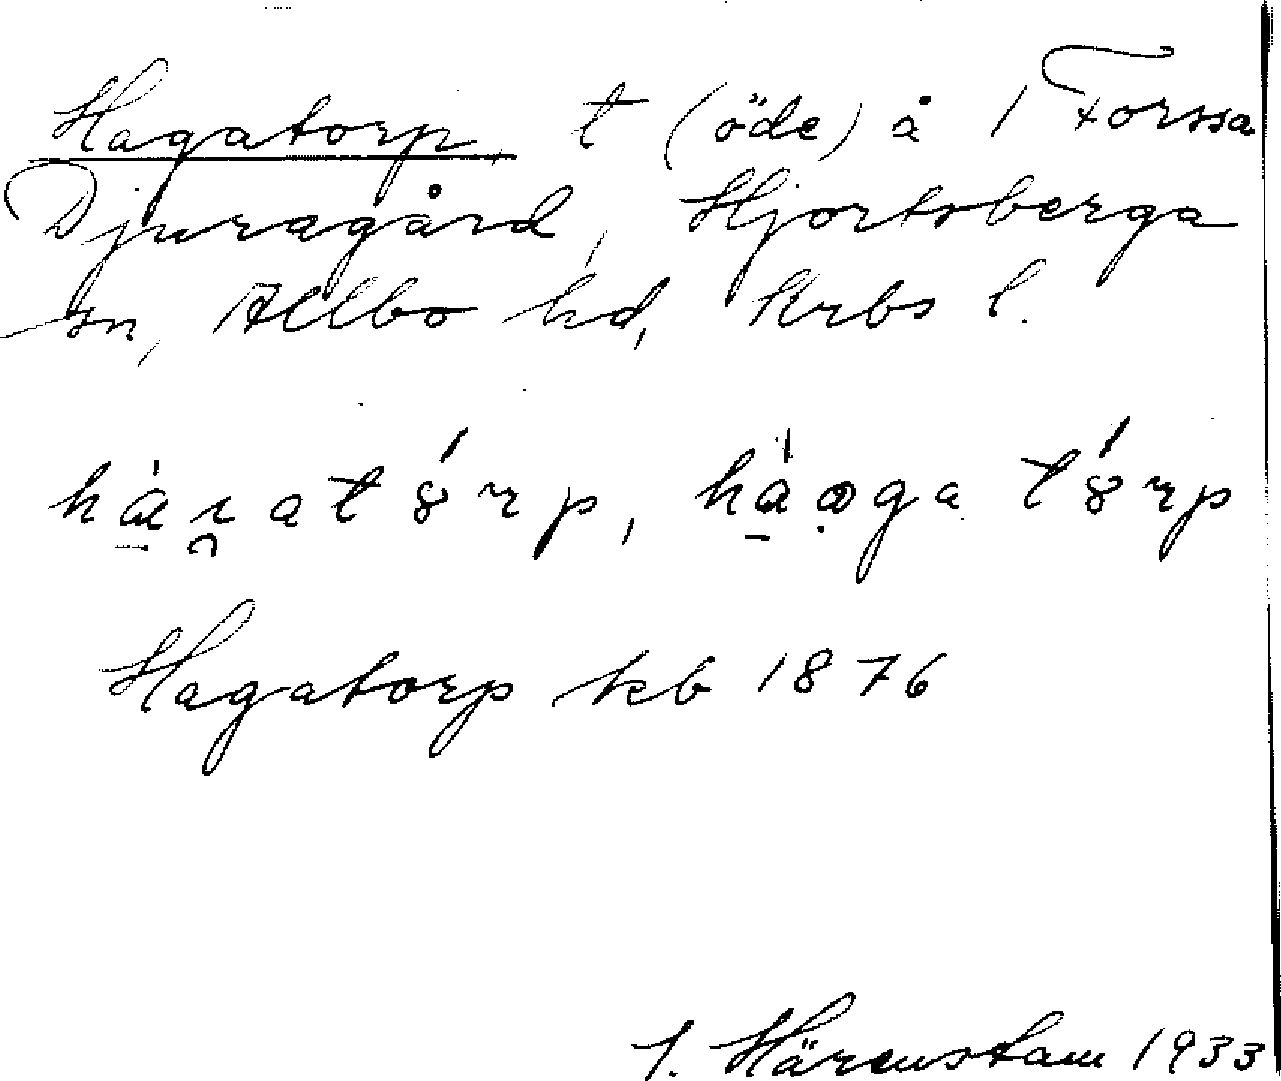 Hagatorp, t (öde) å 1 Forssa
Djuragård, Hjortsberga
sn, Allbo hd, Krbs l.
Hagatorp kb 1876
J. Härenstam 1933